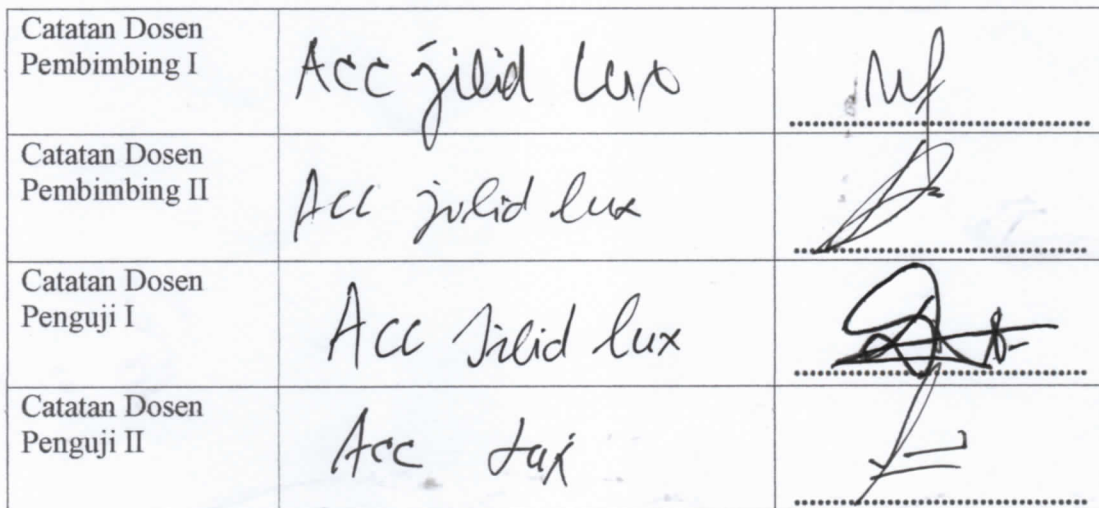 Catatan Dosen
Pembimbing I
Acc jilid Lux
Catatan Dosen
Pembimbing II
Acc jilid lux
Catatan Dosen
Penguji I
Acc Jilid lux
Catatan Dosen
Penguji II
Acc Lux